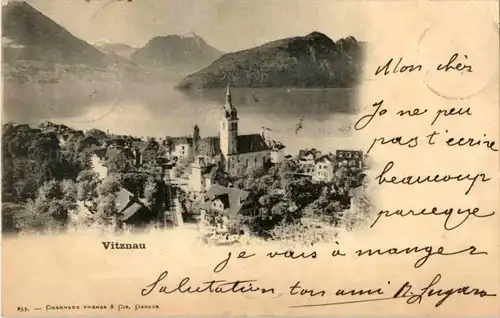 Mon chèr
Je ne peu
pas t'ecrire
beaucoup
parceque
Vitznau
je vais à manger
Salutation ton ami
853. — Charnaux Frères & Cie, Genève